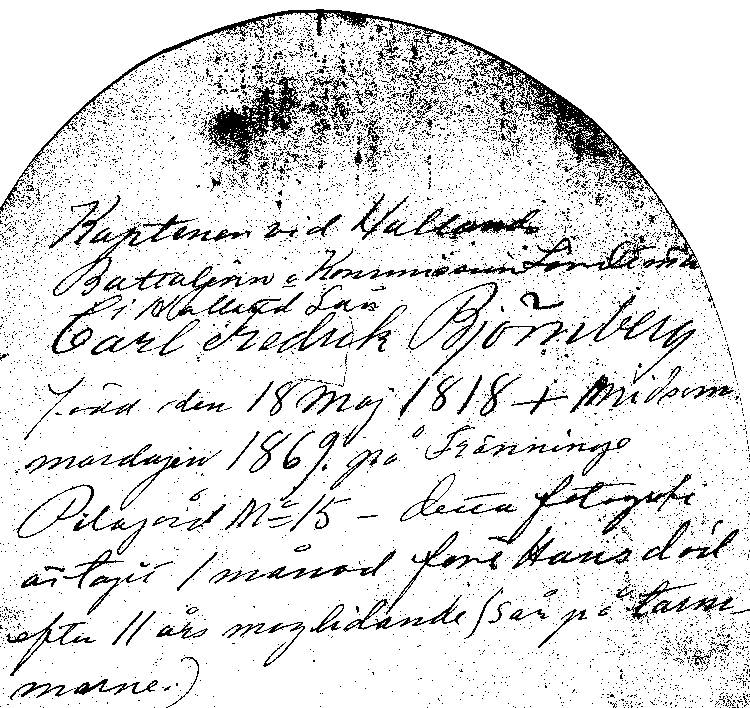 Kaptenen vid Hallands
Battaljon o Kommissionslandtmätare
i Halland Län
Carl Fredrik Björnberg
född den 18 Maj 1818 + Midsom
mardagen 1869. på Tränninge
Pilagård No 15 – detta fotografi
är taget 1 månad före Hans död
efter 11 års maglidande (Sår på tarm
marne.)